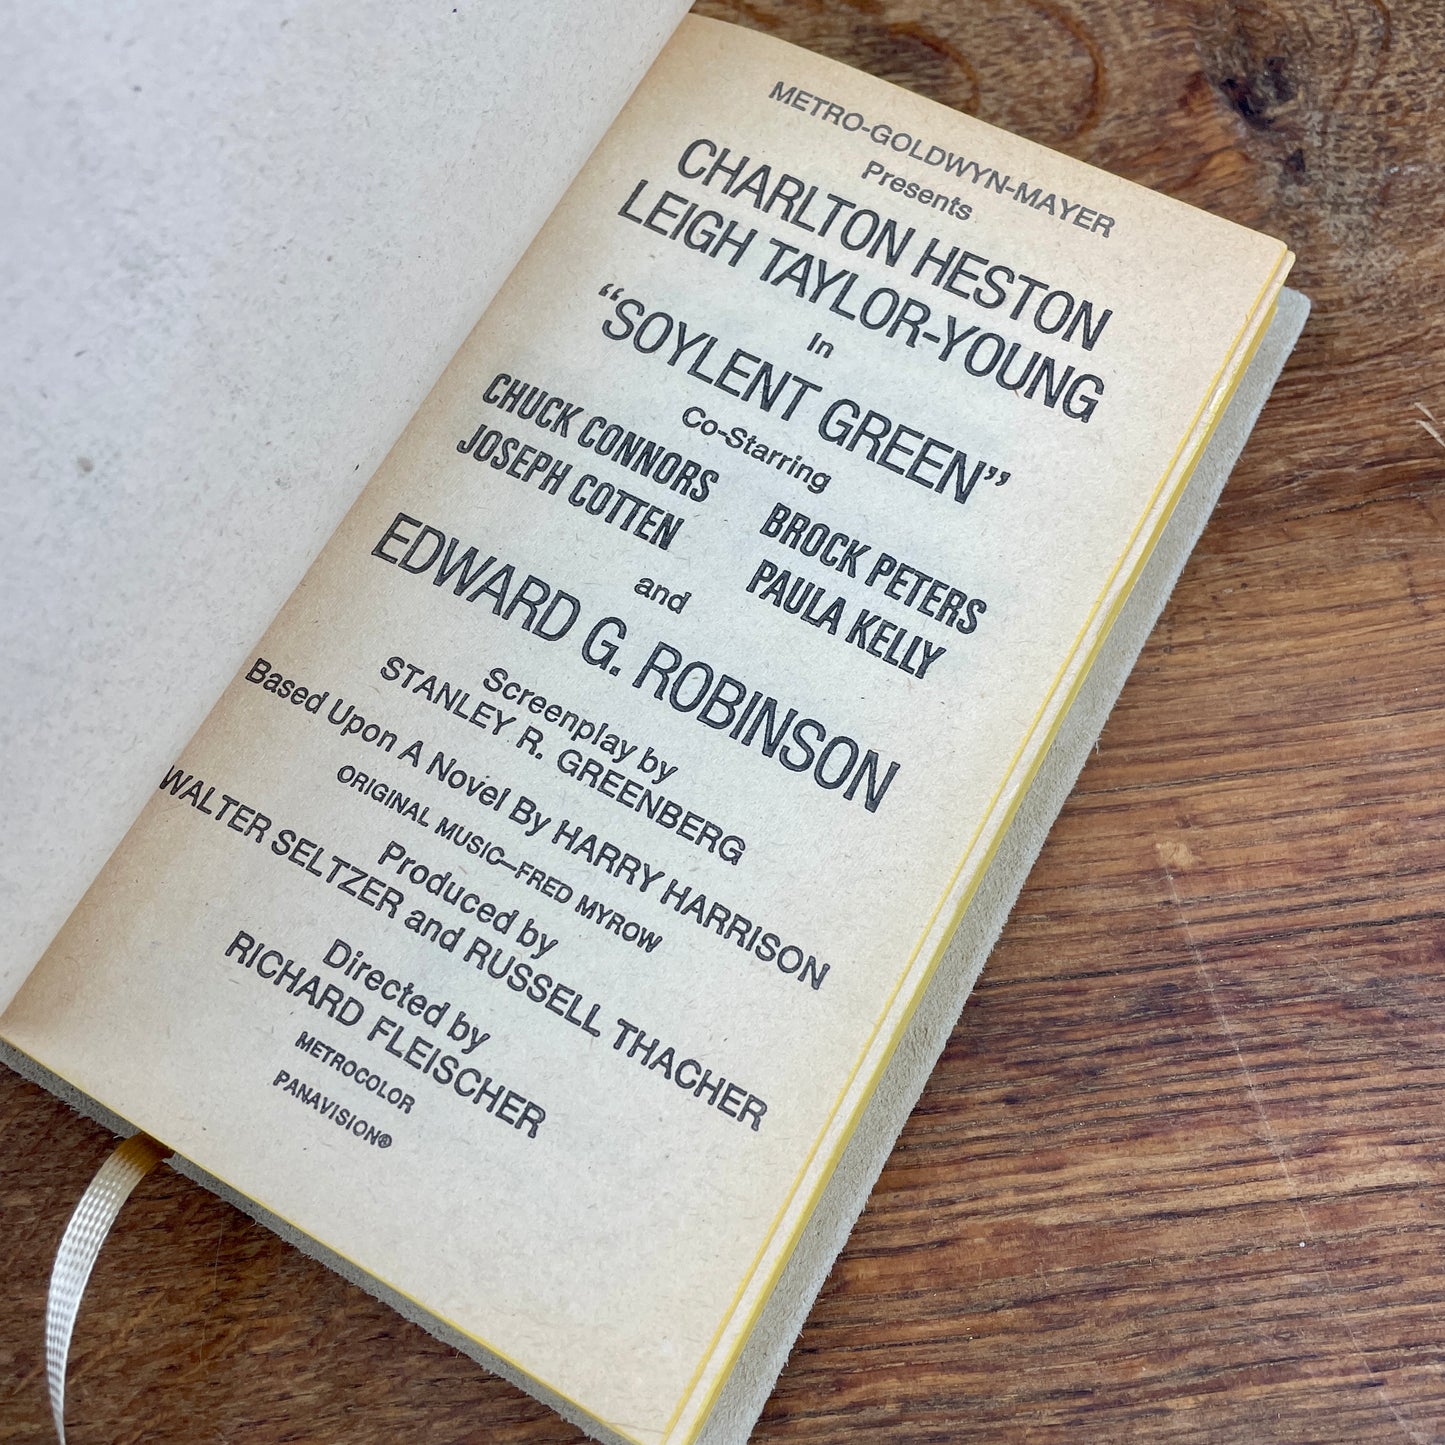 METRO-GOLDWYN-MAYER
Presents
CHARLTON HESTON
LEIGH TAYLOR-YOUNG
In
“SOYLENT GREEN”
Co-Starring
CHUCK CONNORS BROCK PETERS
JOSEPH COTTEN PAULA KELLY
and
EDWARD G. ROBINSON
Screenplay by
STANLEY R. GREENBERG
Based Upon A Novel By HARRY HARRISON
ORIGINAL MUSIC—FRED MYROW
Produced by
WALTER SELTZER and RUSSELL THACHER
Directed by
RICHARD FLEISCHER
METROCOLOR
PANAVISION®